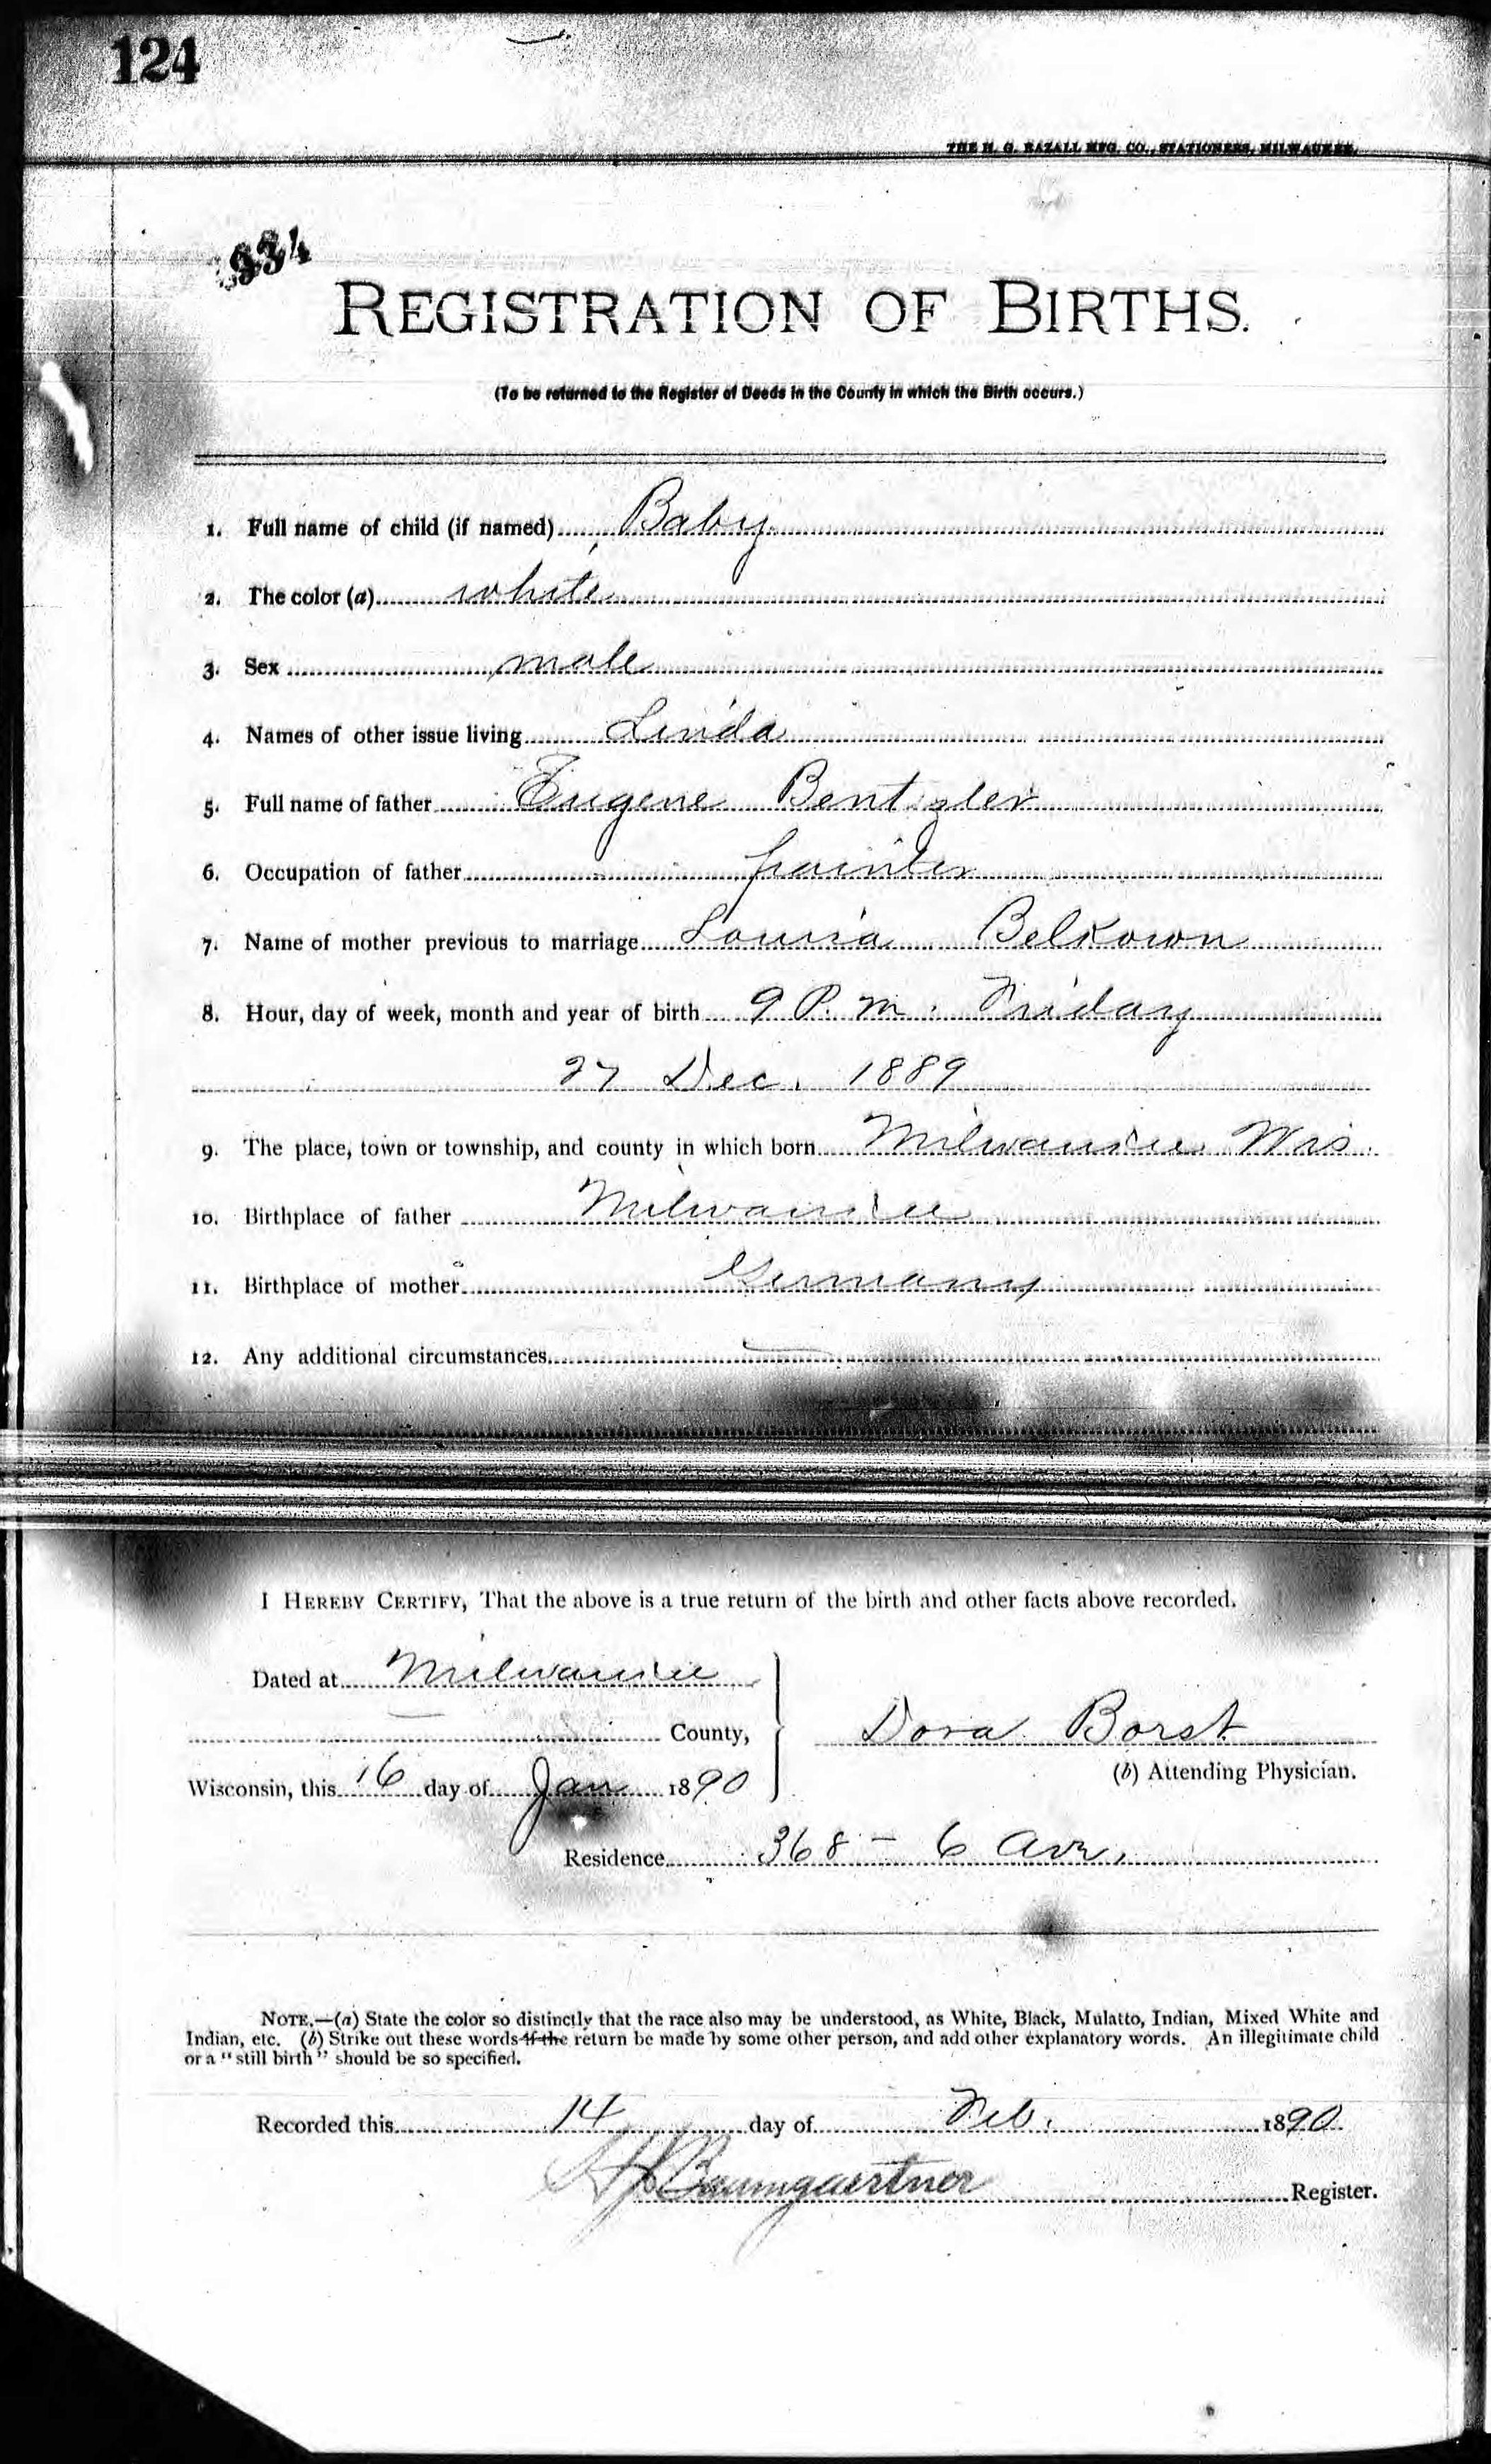 124
THE H. G. RAZALL MFG. CO., STATIONERS, MILWAUKEE.
334
REGISTRATION OF BIRTHS.
(To be returned to the Register of Deeds in the County in which the Birth occurs.)
1. Full name of child (if named) Baby
2. The color (a) white
3. Sex male
4. Names of other issue living Linda
5. Full name of father Eugene Bentzler
6. Occupation of father painter
7. Name of mother previous to marriage Louisa Belkown
8. Hour, day of week, month and year of birth 9 P. M. Friday
27 Dec. 1889
9. The place, town or township, and county in which born Milwaukee Wis.
10. Birthplace of father Milwaukee
11. Birthplace of mother Germany
12. Any additional circumstances
I HEREBY CERTIFY, That the above is a true return of the birth and other facts above recorded.
Dated at Milwaukee
County,
Dora Borst
(b) Attending Physician.
Wisconsin, this 16 day of Jan 1890
Residence 368 - 6 Ave.
NOTE.—(a) State the color so distinctly that the race also may be understood, as White, Black, Mulatto, Indian, Mixed White and
Indian, etc. (b) Strike out these words if the return be made by some other person, and add other explanatory words. An illegitimate child
or a "still birth" should be so specified.
Recorded this 14 day of Feb. 1890
Baumgaertner Register.